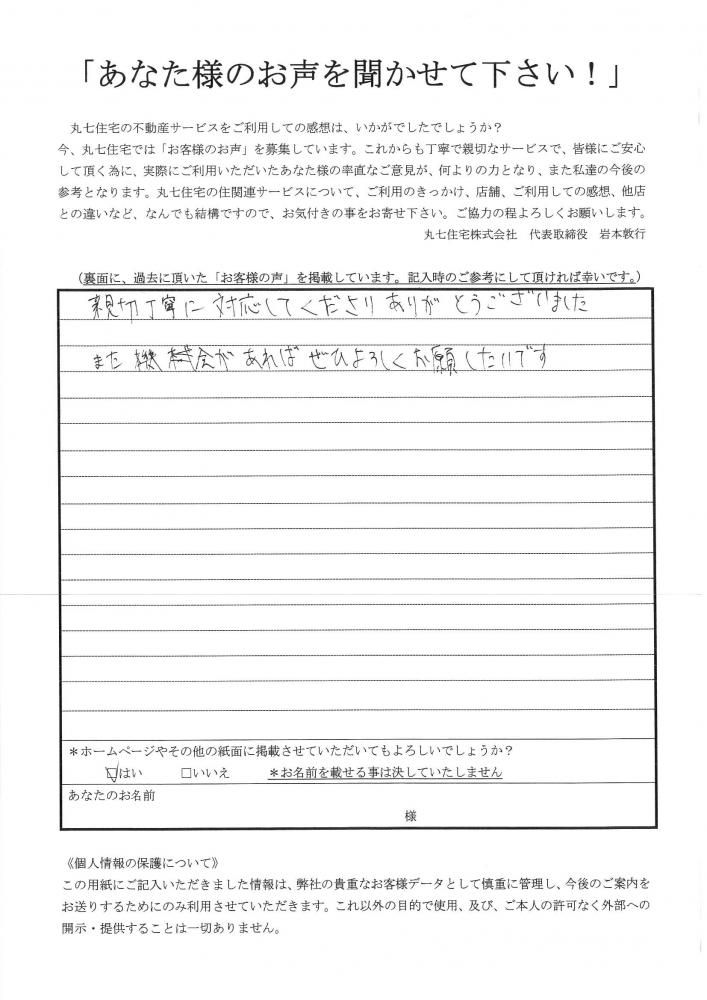 「あなた様のお声を聞かせて下さい！」
丸七住宅の不動産サービスをご利用しての感想は、いかがでしたでしょうか？
今、丸七住宅では「お客様のお声」を募集しています。これからも丁寧で親切なサービスで、皆様にご安心
して頂く為に、実際にご利用いただいたあなた様の率直なご意見が、何よりの力となり、また私達の今後の
参考となります。丸七住宅の住関連サービスについて、ご利用のきっかけ、店舗、ご利用しての感想、他店
との違いなど、なんでも結構ですので、お気付きの事をお寄せ下さい。ご協力の程よろしくお願いします。
丸七住宅株式会社　代表取締役　岩本敦行
（裏面に、過去に頂いた「お客様の声」を掲載しています。記入時のご参考にして頂ければ幸いです。）
親切丁寧に対応してくださりありがとうございました
また機会があればぜひよろしくお願したいです
＊ホームページやその他の紙面に掲載させていただいてもよろしいでしょうか？
☑はい　□いいえ　＊お名前を載せる事は決していたしません
あなたのお名前
様
《個人情報の保護について》
この用紙にご記入いただきました情報は、弊社の貴重なお客様データとして慎重に管理し、今後のご案内を
お送りするためにのみ利用させていただきます。これ以外の目的で使用、及び、ご本人の許可なく外部への
開示・提供することは一切ありません。